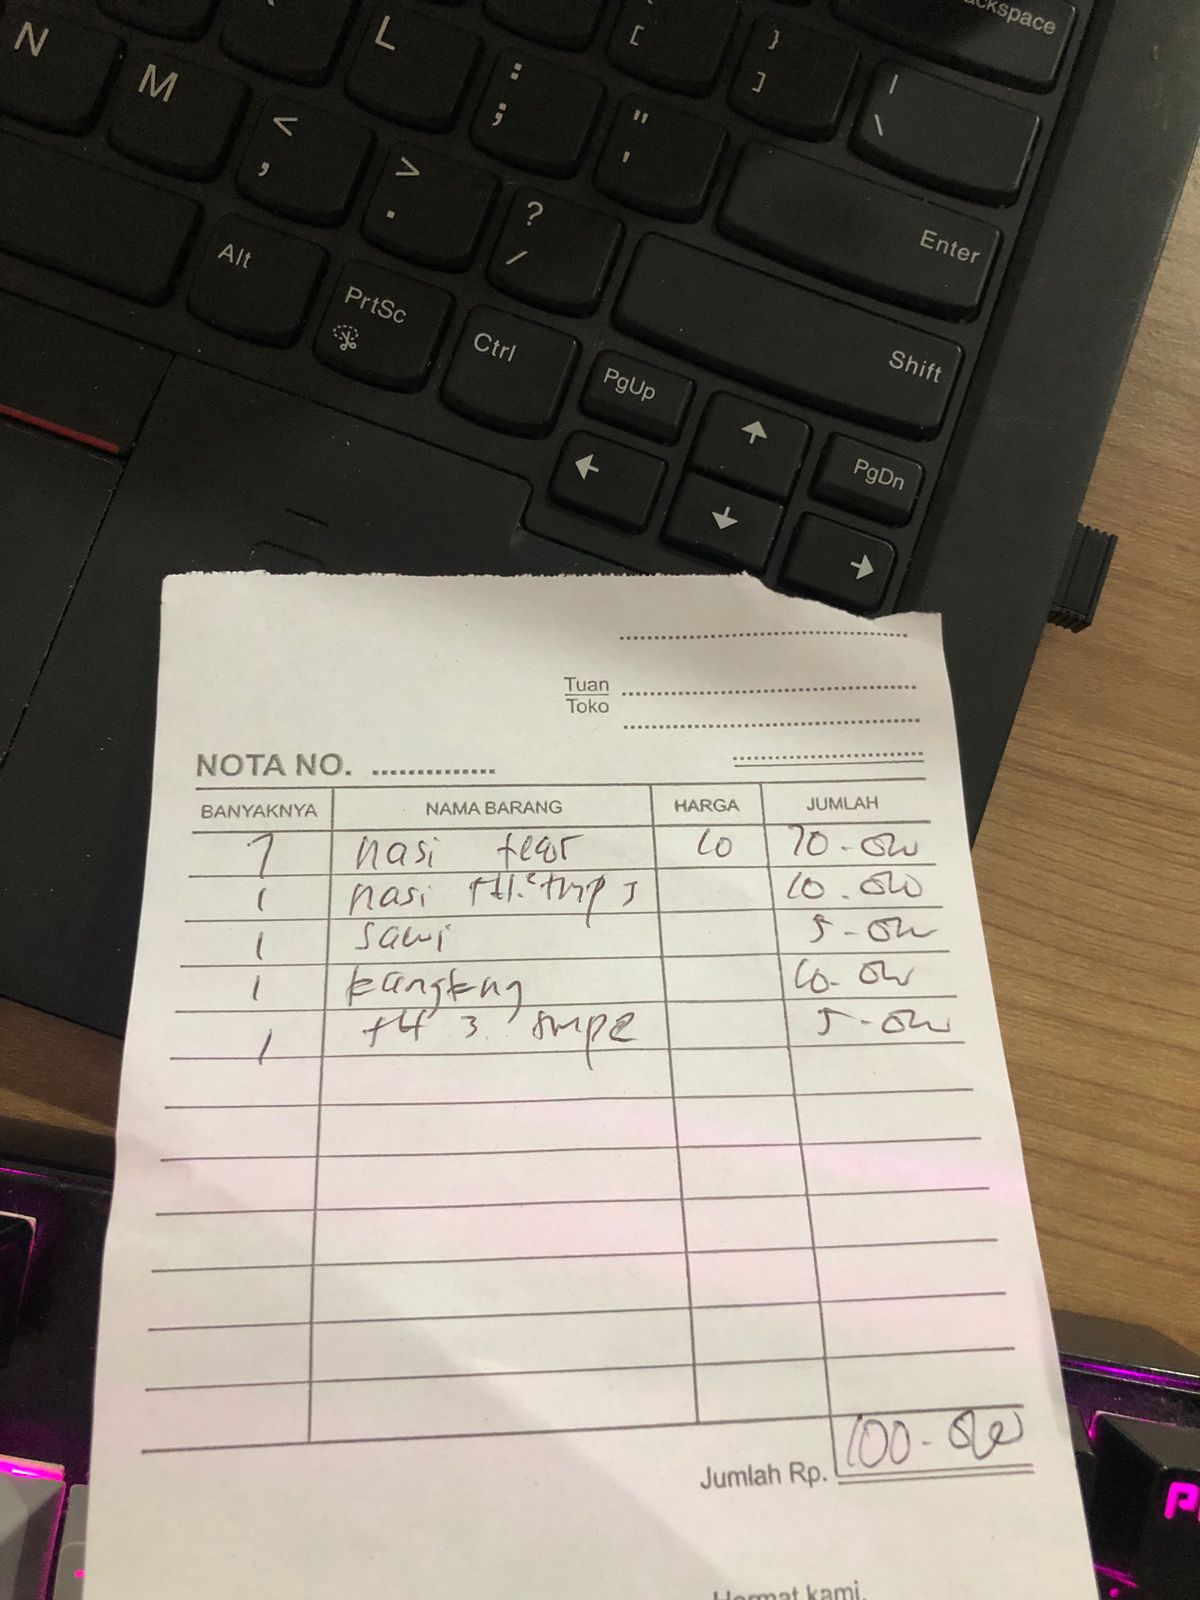 N M L : ; " ' { [ } ] | \ Backspace
< , > . ? / Enter
Alt PrtSc Ctrl PgUp Shift
PgDn
Tuan
Toko
NOTA NO.
BANYAKNYA NAMA BARANG HARGA JUMLAH
7 nasi telor 10 70-000
1 nasi 10.000
1 sawi 5-000
1 kangkng 10-000
1 3 5-000
Jumlah Rp. 100-000
Hormat kami,